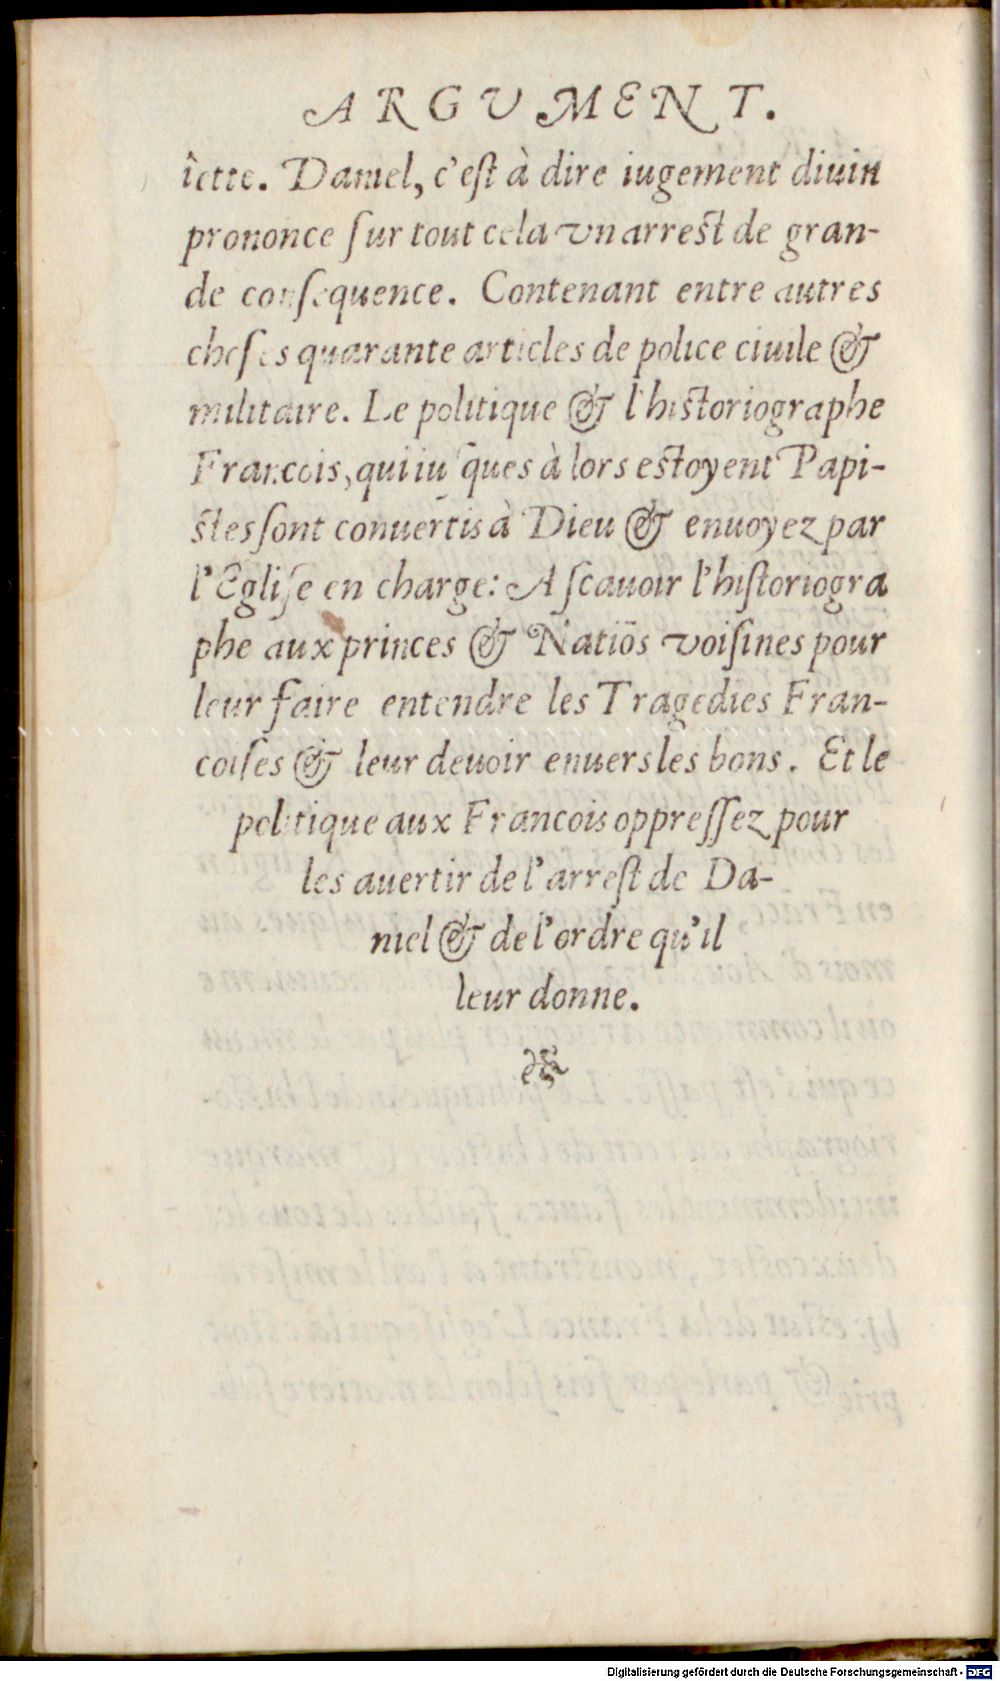 ARGVMENT.
iette. Daniel, c'eſt à dire iugement diuin
prononce ſur tout cela vn arreſt de gran-
de conſequence. Contenant entre autres
choſes quarante articles de police ciuile &
militaire. Le politique & l'hiſtoriographe
Francois, qui iuſques à lors eſtoyent Papi-
ſtes ſont conuertis à Dieu & enuoyez par
l'Egliſe en charge: A ſcauoir l'hiſtoriogra
phe aux princes & Natiõs voiſines pour
leur faire entendre les Tragedies Fran-
coiſes & leur deuoir enuers les bons. Et le
politique aux Francois oppreſſez pour
les auertir de l'arreſt de Da-
niel & de l'ordre qu'il
leur donne.
Digitalisierung gefördert durch die Deutsche Forschungsgemeinschaft - DFG